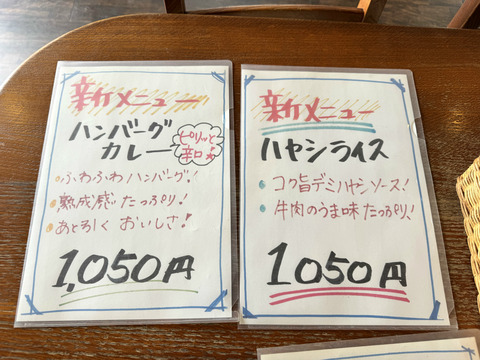 新メニュー
ハンバーグ
カレー
ピリッと
辛口!
ふわふわハンバーグ!
熟成感たっぷり!
あとひく おいしさ!
1,050円
新メニュー
ハヤシライス
コク旨デミハヤシソース!
牛肉のうま味たっぷり!
1050円